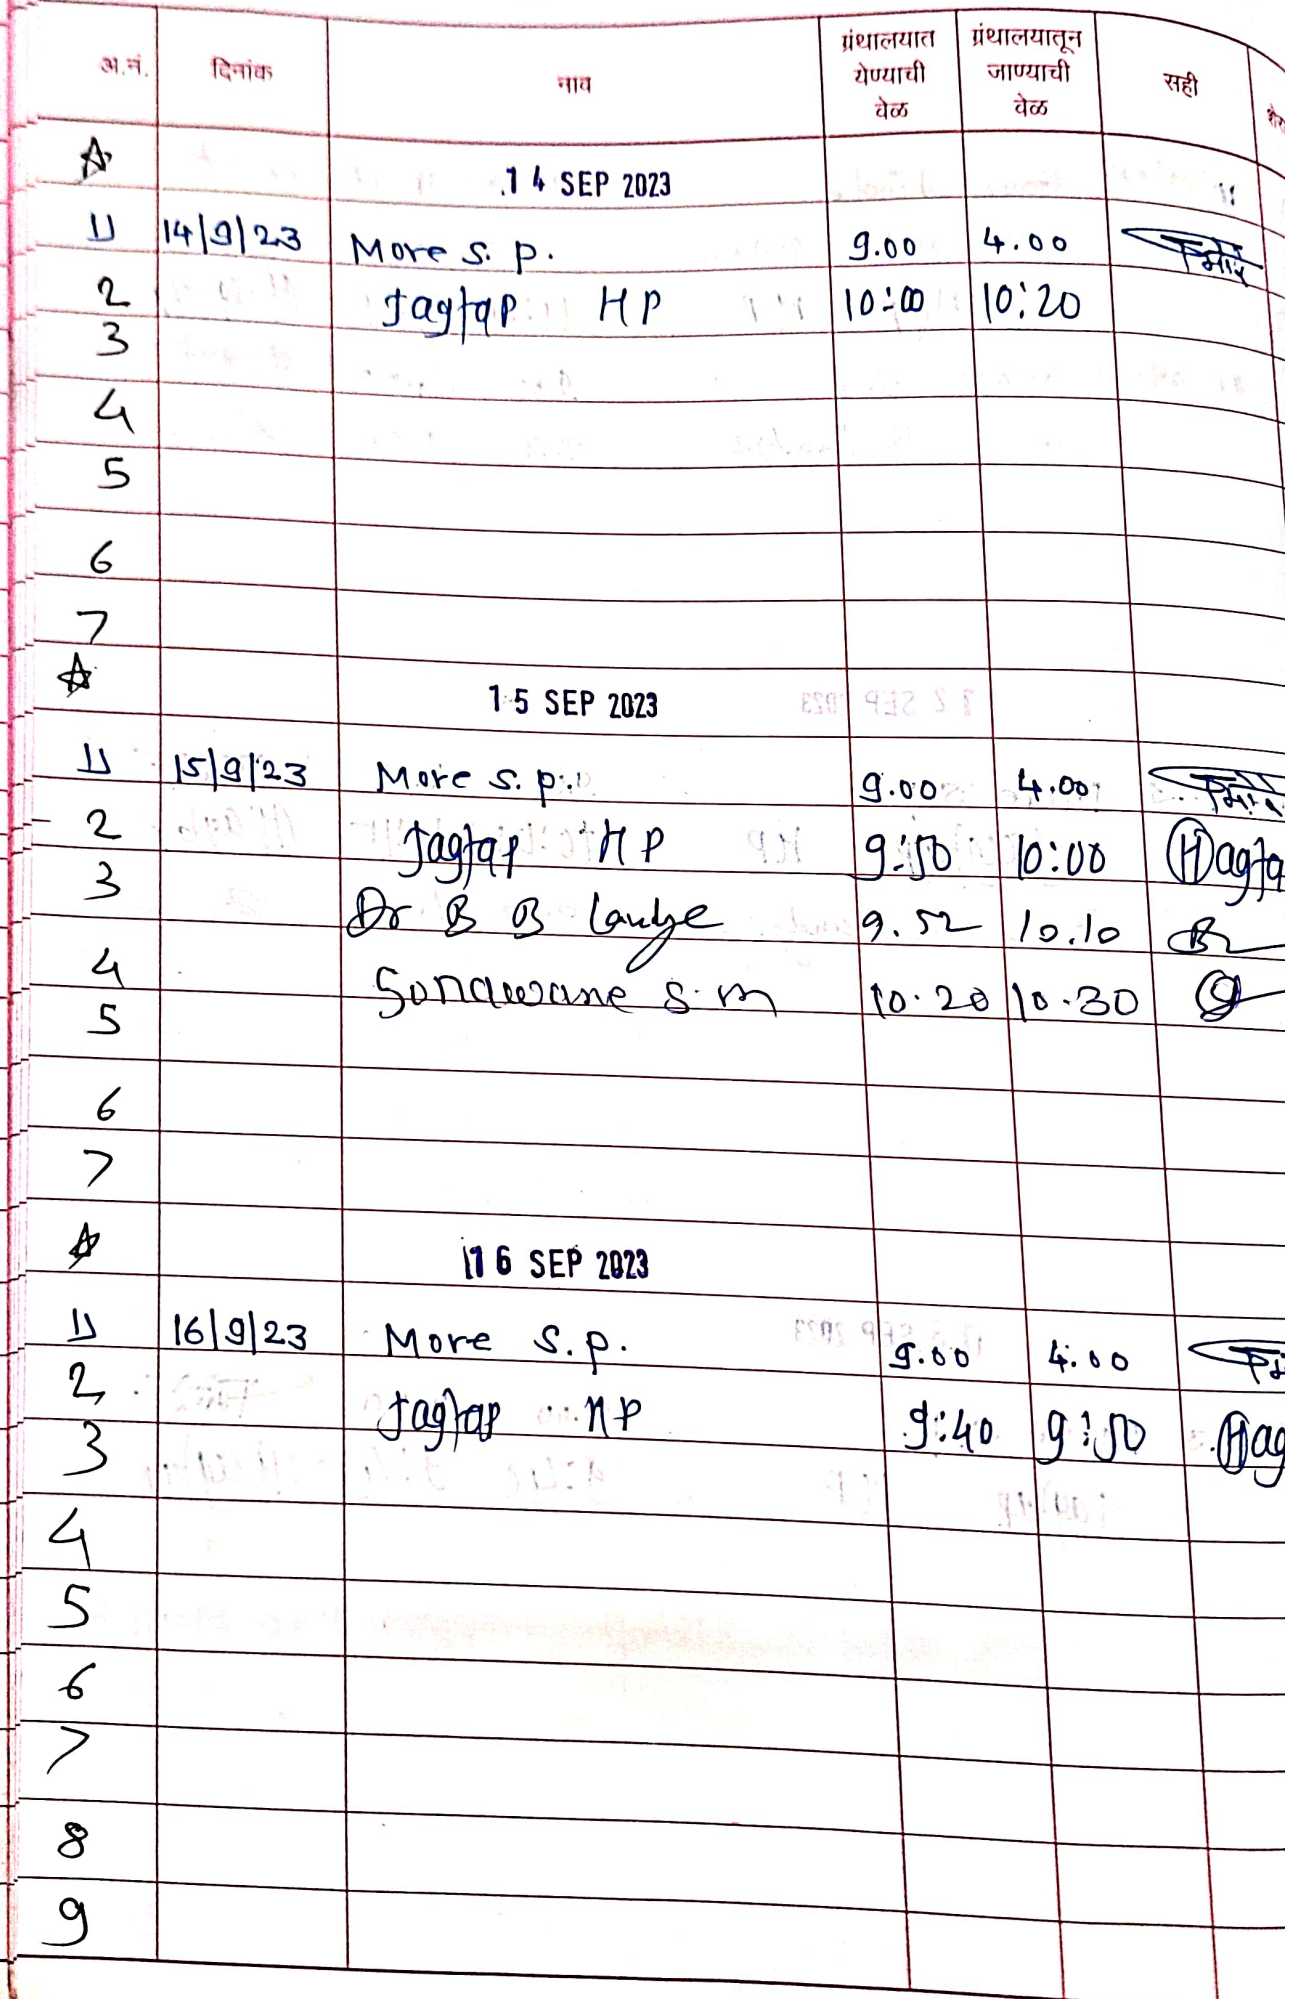 अ.नं. दिनांक नाव ग्रंथालयात येण्याची वेळ ग्रंथालयातून जाण्याची वेळ सही
14 SEP 2023
1) 14/9/23 More S. P. 9.00 4.00
2 Jagtap HP 10:00 10:20
3
4
5
6
7
15 SEP 2023
1) 15/9/23 More S. P. 9.00 4.00
2 Jagtap HP 9:50 10:00 Hagta
3 Dr B B 9.52 10.10
4 Sonawane S. M 10.20 10.30
5
6
7
16 SEP 2023
1) 16/9/23 More S. P. 9.00 4.00
2 Jagtap HP 9:40 9:50 Hag
3
4
5
6
7
8
9